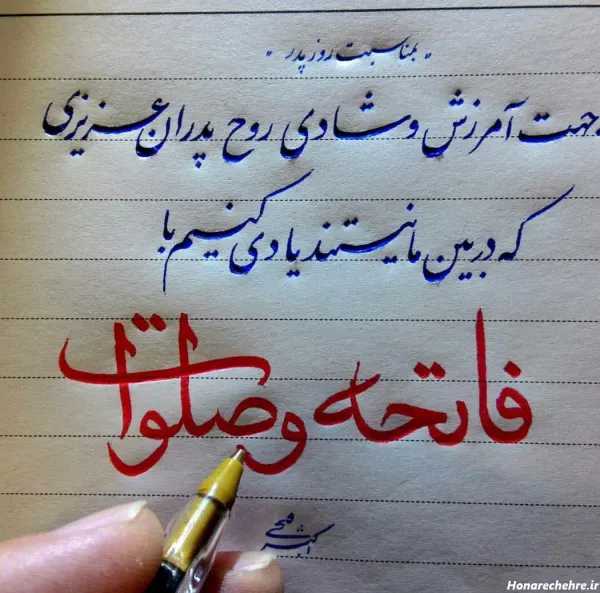 " بمناسبت روز پدر "
جهت آمرزش و شادی روح پدران عزیزی
که در بین ما نیستند یادی کنیم با
فاتحه و صلوات
Honarechehre.ir